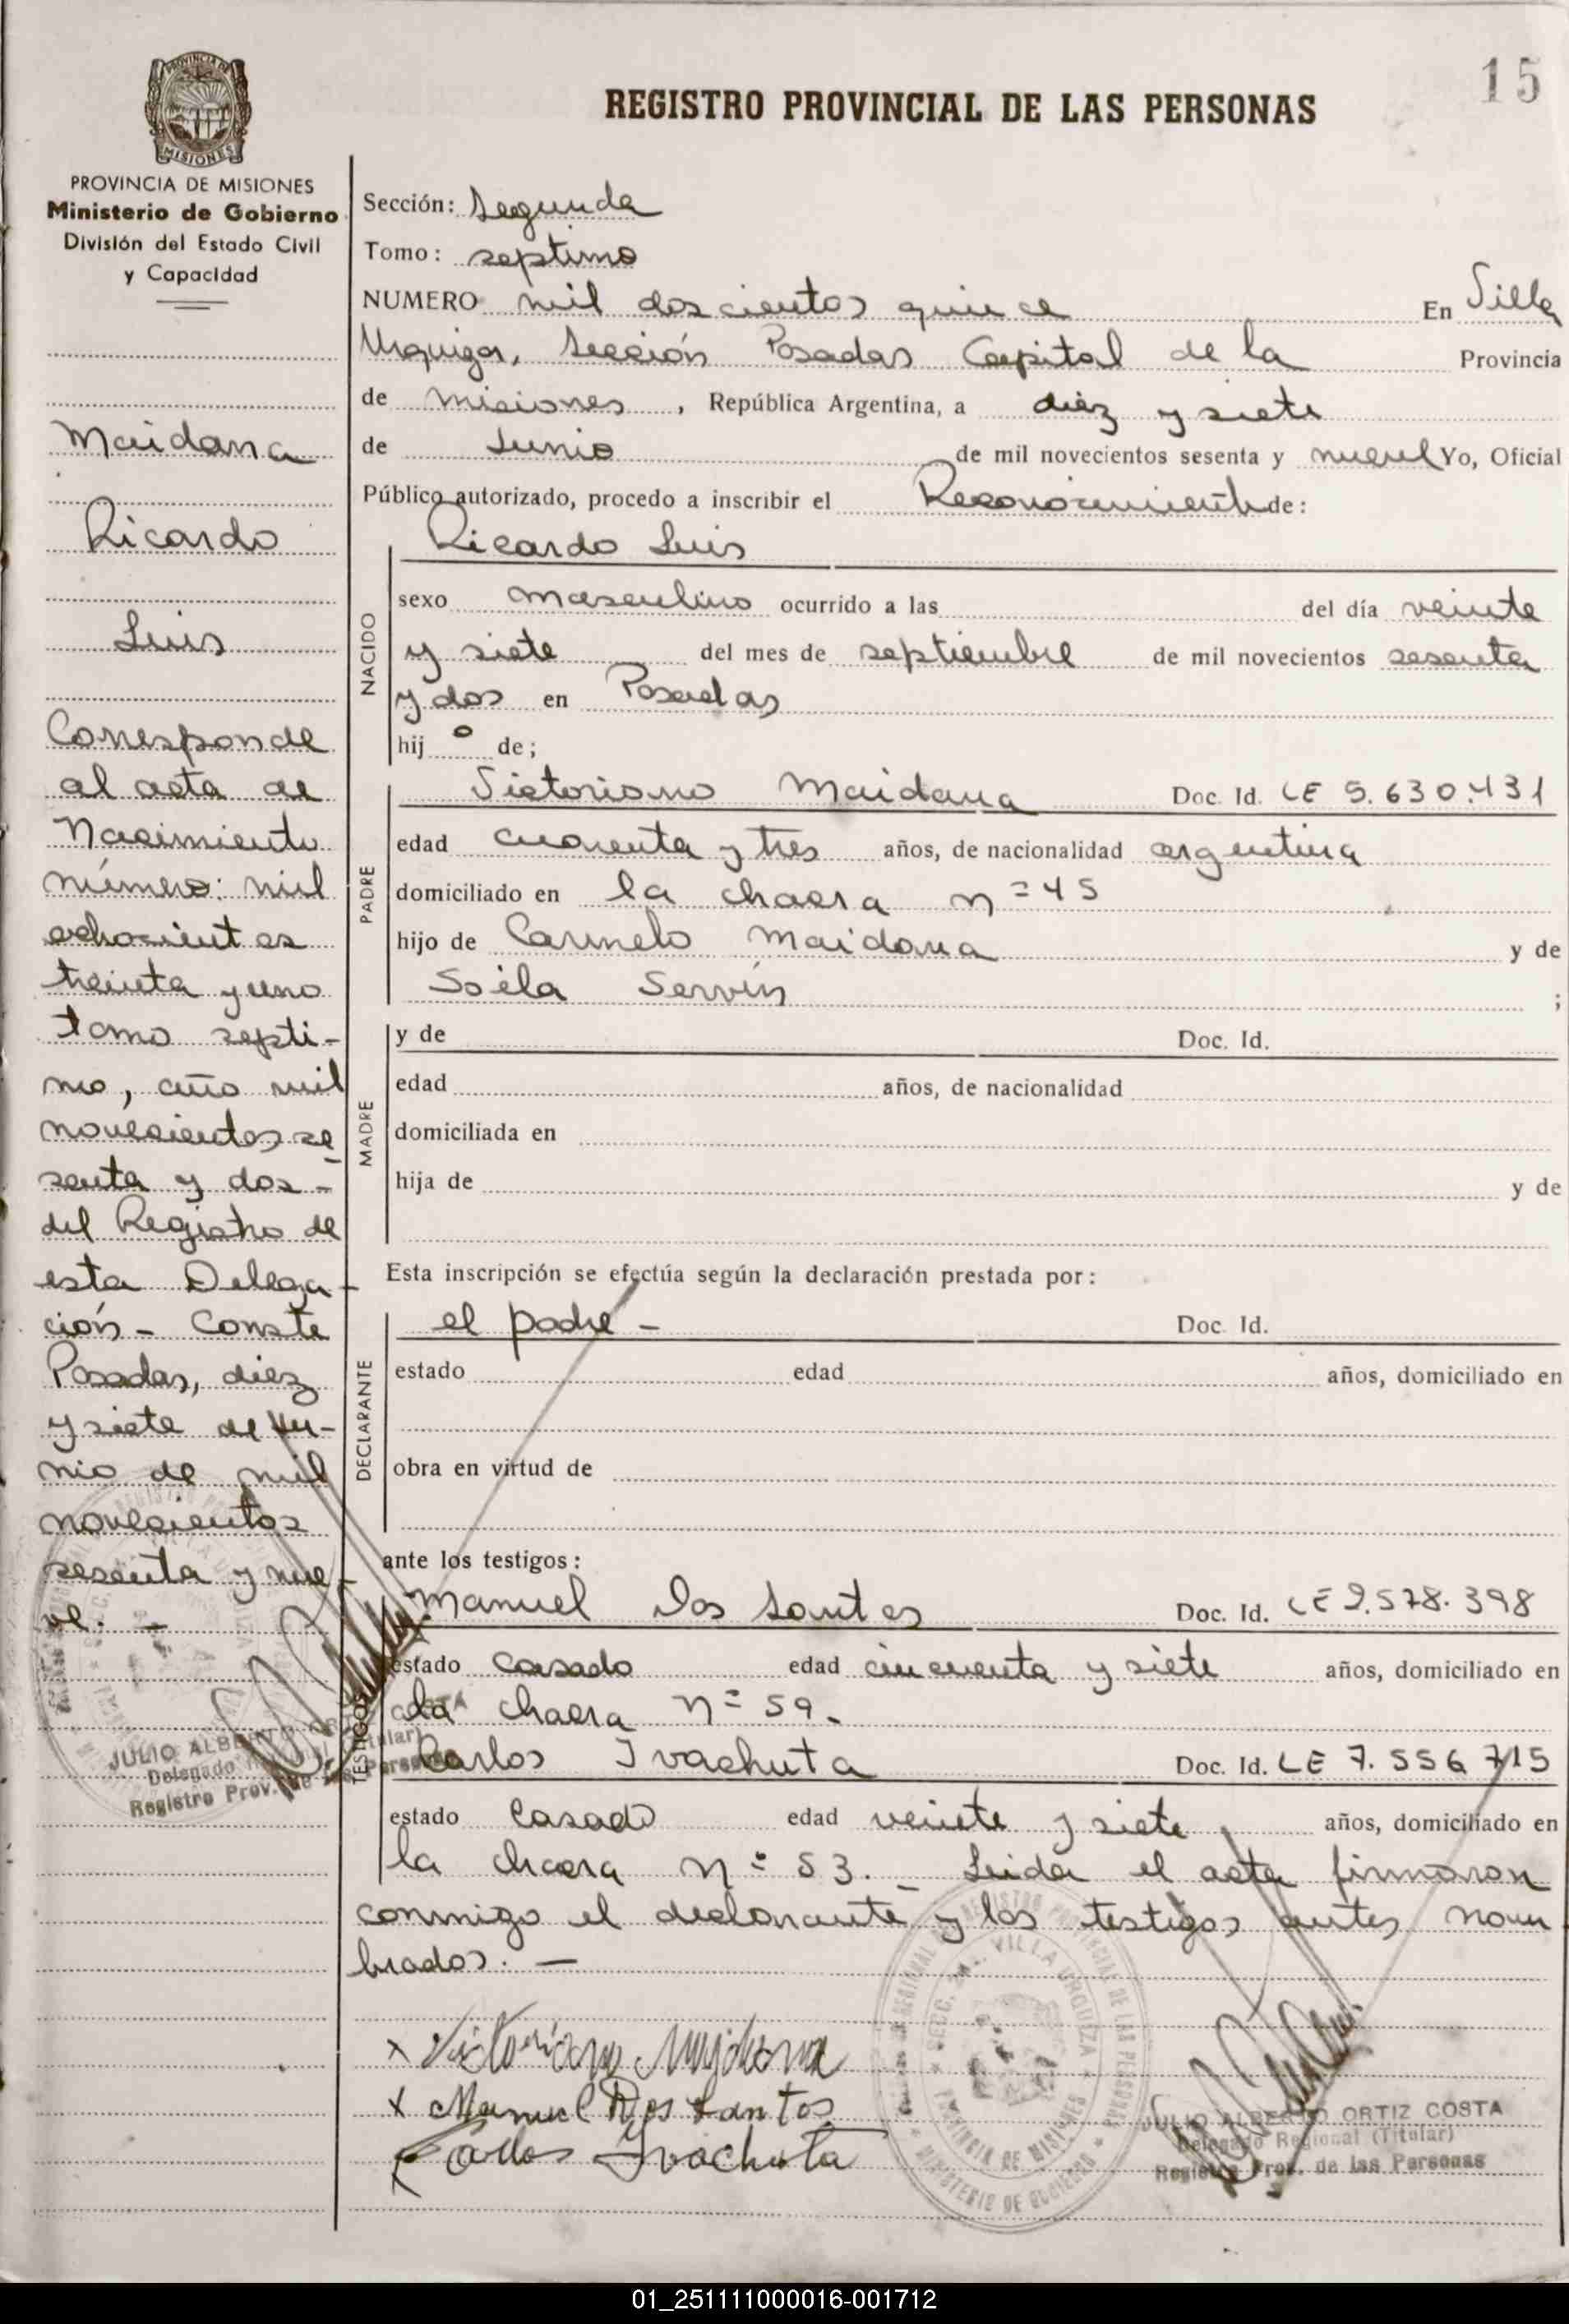 15
REGISTRO PROVINCIAL DE LAS PERSONAS
PROVINCIA DE MISIONES
MISIONES
PROVINCIA DE MISIONES
Ministerio de Gobierno
División del Estado Civil
y Capacidad
Maidana
Ricardo
Luis
Corresponde
al acta de
Nacimiento
número: mil
ochocientos
treinta y uno
tomo septi-
mo, año mil
novecientos se
senta y dos -
del Registro de
esta Delega-
ción - Conste
Posadas, diez
y siete de Ju-
nio de mil
novecientos
sesenta y nue-
ve. -
JULIO ALBERTO ORTIZ COSTA
Delegado Regional (Titular)
Registro Prov. de las Personas
Sección: Segunda
Tomo: septimo
NUMERO mil doscientos quince En Villa
Urquiza, Sección Posadas Capital de la Provincia
de Misiones, República Argentina, a diez y siete
de Junio de mil novecientos sesenta y nueve Yo, Oficial
Público autorizado, procedo a inscribir el Reconocimiento de:
NACIDO
Ricardo Luis
sexo masculino ocurrido a las del día veinte
y siete del mes de septiembre de mil novecientos sesenta
y dos en Posadas
hijo de;
PADRE
Victoriano Maidana Doc. Id. LE 5.630.431
edad cuarenta y tres años, de nacionalidad argentina
domiciliado en la chacra n= 45
hijo de Carmelo Maidana y de
Soila Servín ;
MADRE
y de Doc. Id.
edad años, de nacionalidad
domiciliada en
hija de y de
Esta inscripción se efectúa según la declaración prestada por:
DECLARANTE
el padre - Doc. Id.
estado edad años, domiciliado en
obra en virtud de
ante los testigos:
TESTIGOS
Manuel Dos Santos Doc. Id. LE 2.578.398
estado casado edad cincuenta y siete años, domiciliado en
la chacra n= 59.
Carlos Ivachuta Doc. Id. LE 7.556 715
estado casado edad veinte y siete años, domiciliado en
la chacra n= 53. - Leida el acta firmaron
conmigo el declarante y los testigos antes nom
brados. -
x Victoriano Maidana
x Manuel Dos Santos
x Carlos Ivachuta
REGISTRO PROVINCIAL DE LAS PERSONAS
SECC. 2da. VILLA URQUIZA
PROVINCIA DE MISIONES
MINISTERIO DE GOBIERNO
JULIO ALBERTO ORTIZ COSTA
Delegado Regional (Titular)
Registro Prov. de las Personas
01_251111000016-001712